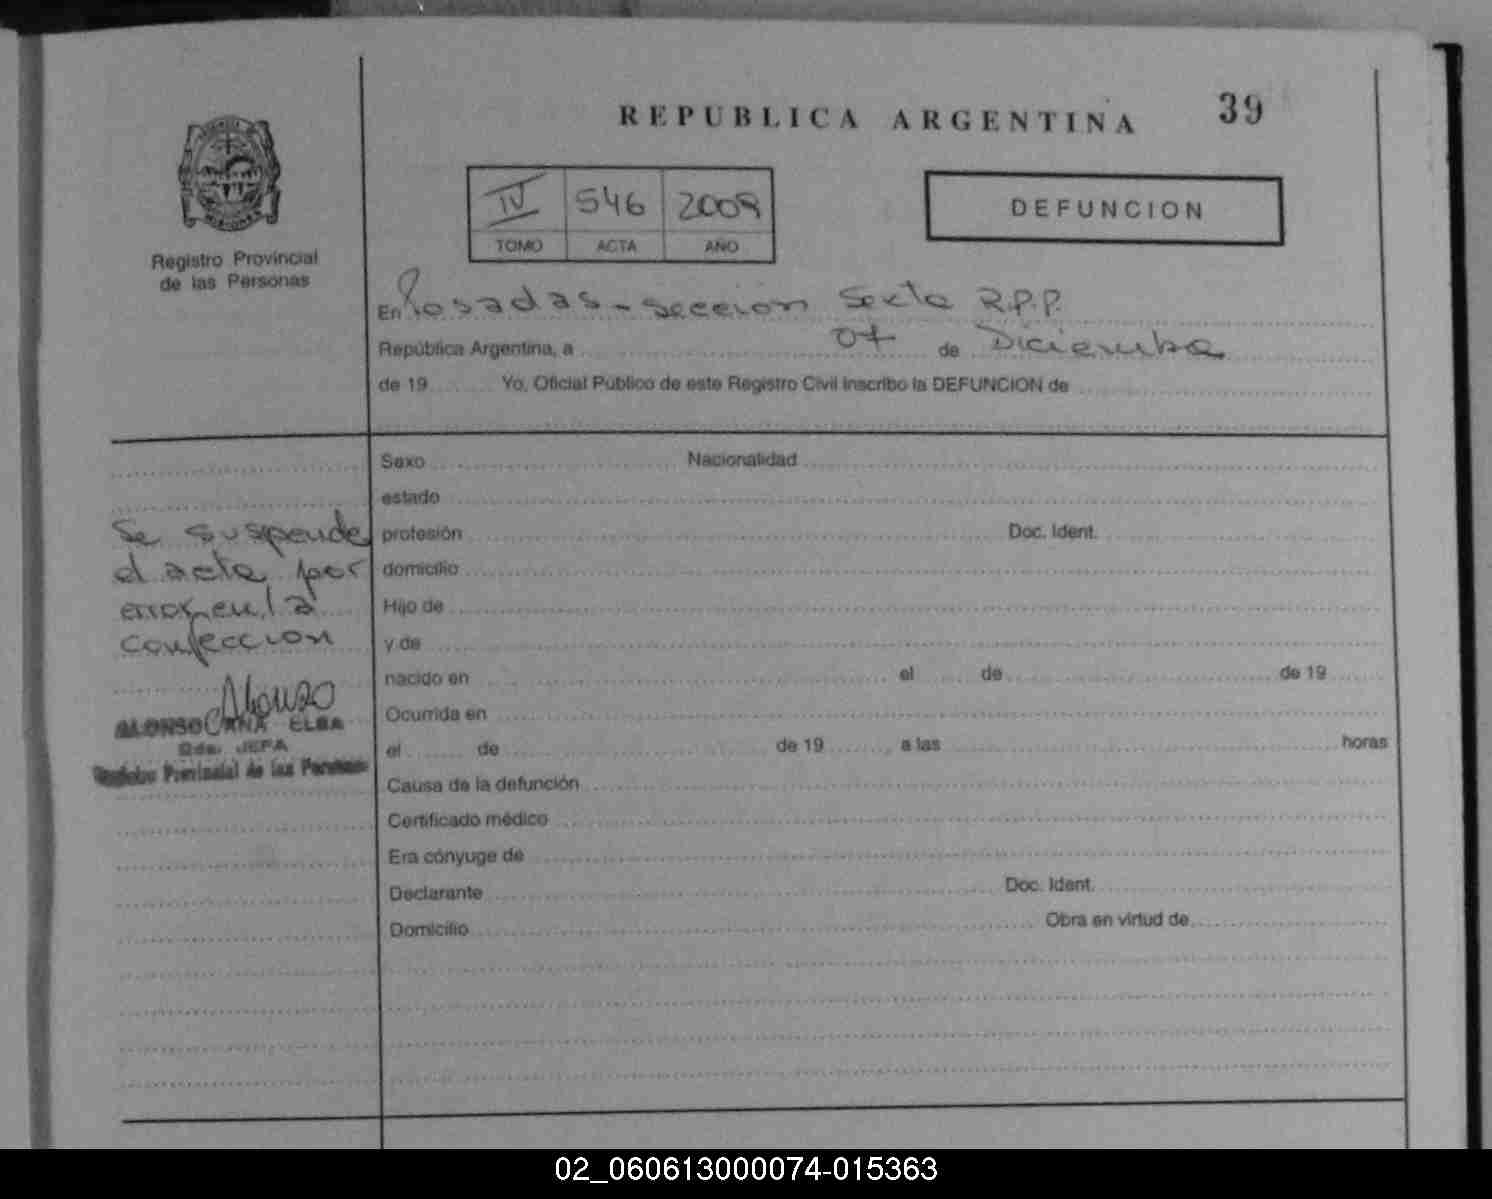 REPUBLICA ARGENTINA 39
IV 546 2009
TOMO ACTA AÑO
DEFUNCION
MISIONES
Registro Provincial
de las Personas
En Posadas - seccion Sexta R.P.P.
República Argentina, a 07 de Diciembre
de 19 Yo, Oficial Público de este Registro Civil inscribo la DEFUNCION de
Sexo Nacionalidad
estado
profesión Doc. Ident.
domicilio
Hijo de
y de
nacido en el de de 19
Ocurrida en
el de de 19 a las horas
Causa de la defunción
Certificado médico
Era cónyuge de
Declarante Doc. Ident.
Domicilio Obra en virtud de
Se suspende
el acta por
error en la
confeccion
Alonzo
ALONSO ANA ELBA
JEFA
Registro Provincial de las Personas
02_060613000074-015363